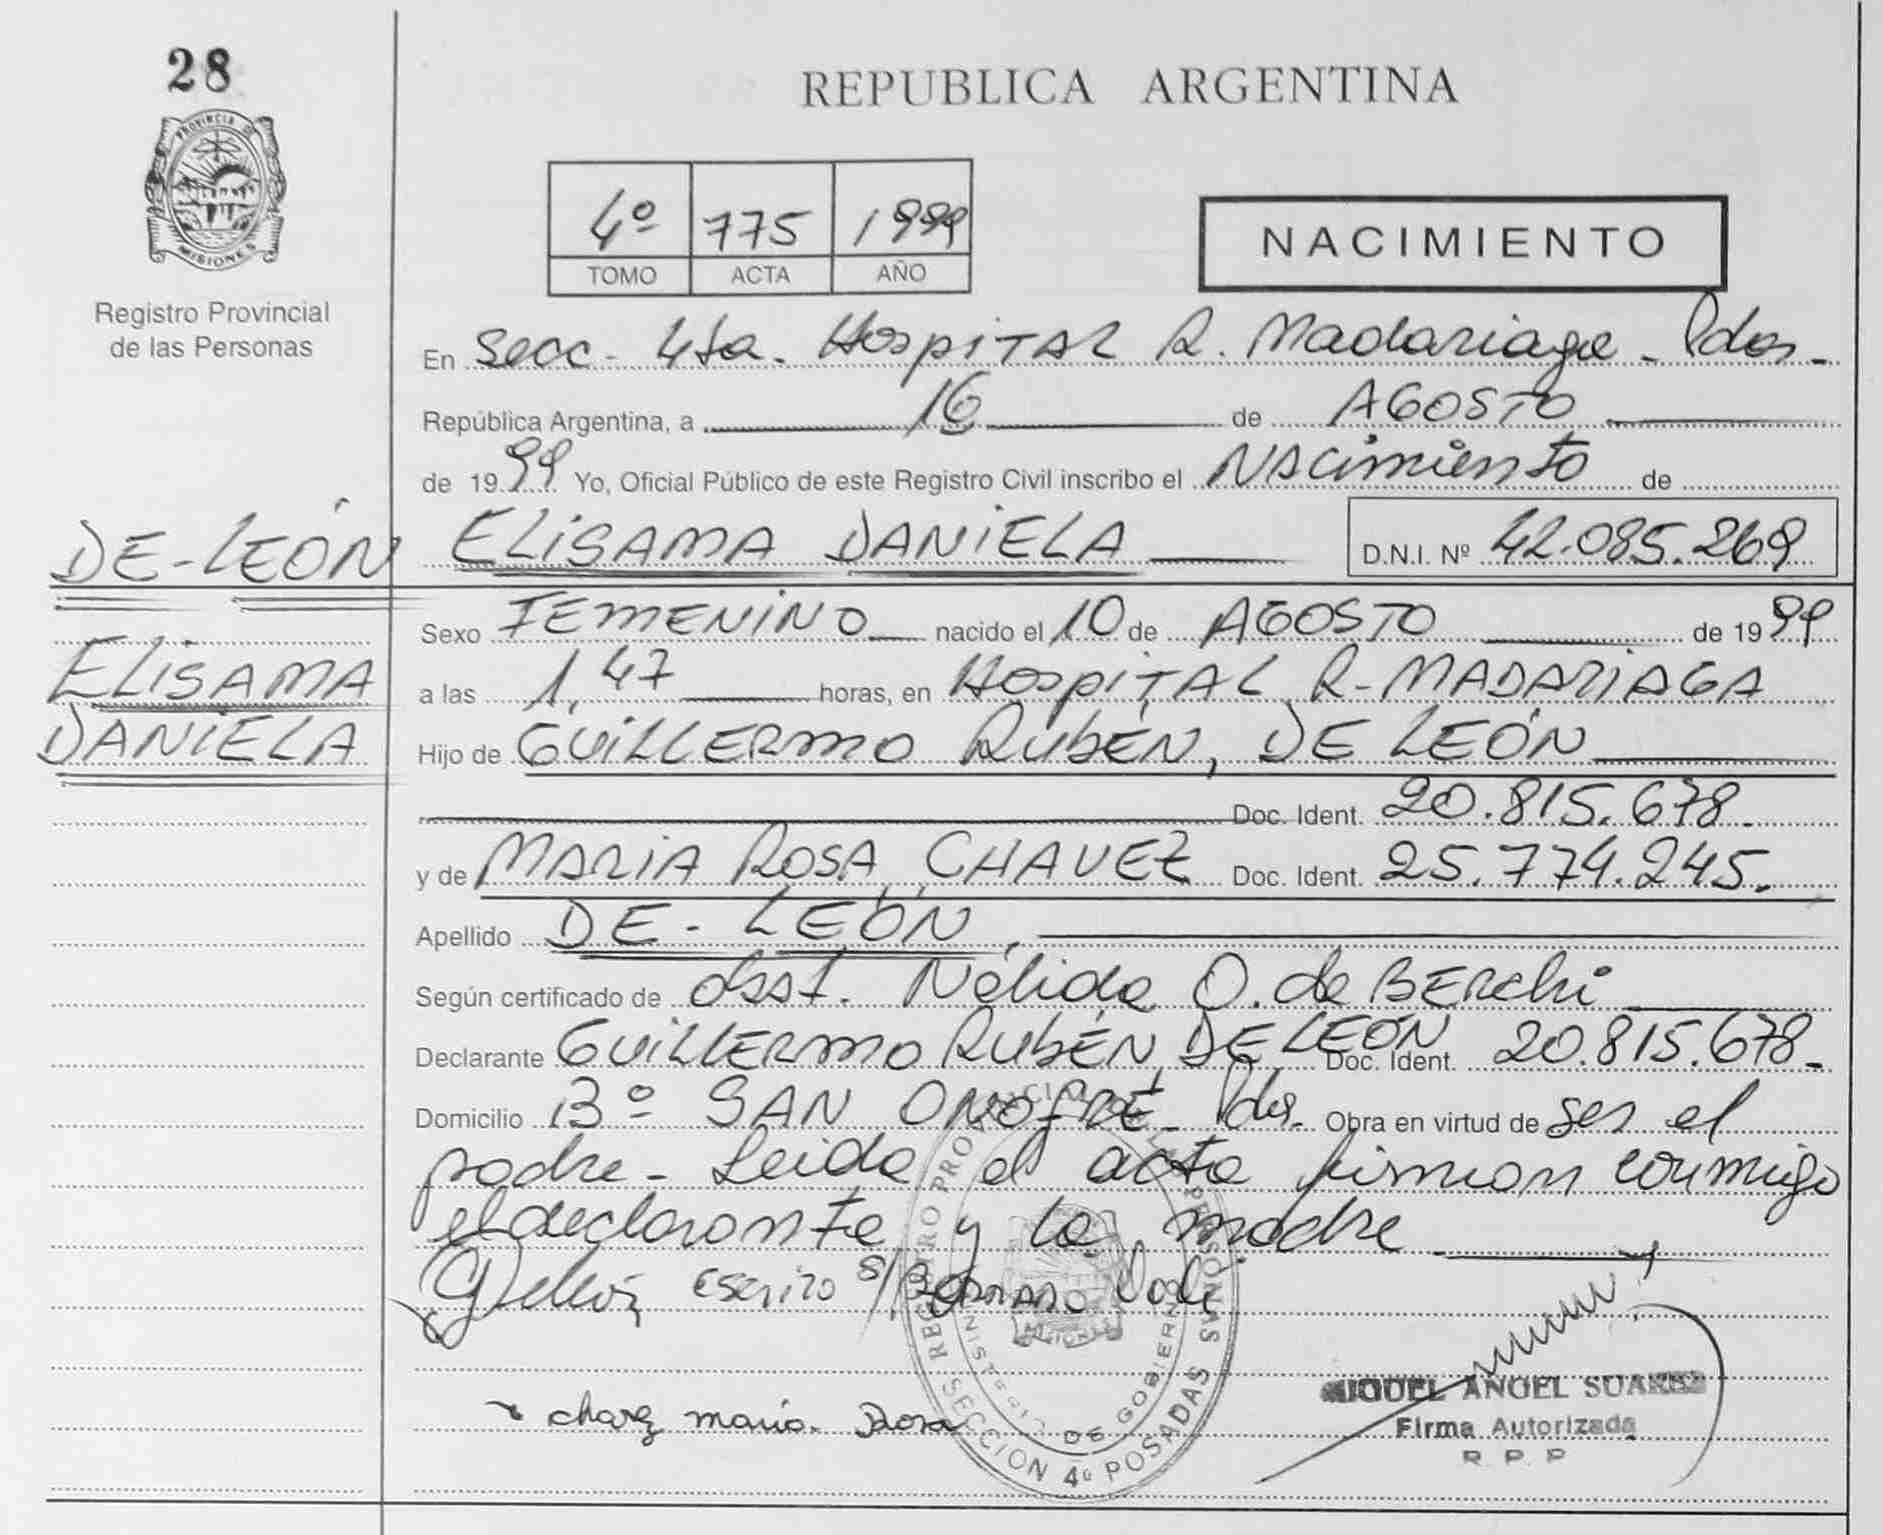 28
PROVINCIA DE
MISIONES
Registro Provincial
de las Personas
DE-LEÓN
ELISAMA
DANIELA
REPUBLICA ARGENTINA
4º 775 1999
TOMO ACTA AÑO
NACIMIENTO
En Secc- 4ta. Hospital R. Madariaga - Pdas.-
República Argentina, a 16 de AGOSTO
de 1999 Yo, Oficial Público de este Registro Civil inscribo el Nacimiento de
ELISAMA DANIELA D.N.I. Nº 42.085.269
Sexo FEMENINO nacido el 10 de AGOSTO de 1999
a las 1,47 horas, en Hospital R-MADARIAGA
Hijo de GUILLERMO RUBÉN, DE LEÓN
Doc. Ident. 20.815.678.
y de MARIA ROSA, CHAVEZ Doc. Ident. 25.774.245.
Apellido DE-LEÓN,
Según certificado de Obst. Nélida O. de BERchi
Declarante GUILLERMO RUBÉN, DE LEÓN Doc. Ident. 20.815.678-
Domicilio Bº SAN ONOFRE - Pdas. Obra en virtud de ser el
padre- Leida el acta firman conmigo
el declarante y la madre
Deleón escrito s/Borrado Vale
chavez maria. Rosa
REGISTRO PROVINCIAL
MINISTERIO DE GOBIERNO
MISIONES
SECCION 4º POSADAS
MIGUEL ANGEL SUAREZ
Firma Autorizada
R. P. P